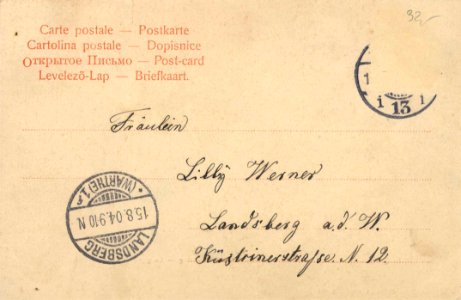 92,-
Carte postale — Postkarte
Cartolina postale — Dopisnice
Открытое Письмо — Post-card
Levelező-Lap — Briefkaart.
1 13 1
Fräulein
Lilly Werner
Landsberg a.d. W.
Küstrinerstraße. N. 12.
LANDSBERG
15.8.04.9 10 N
* (WARTHE) 1 *